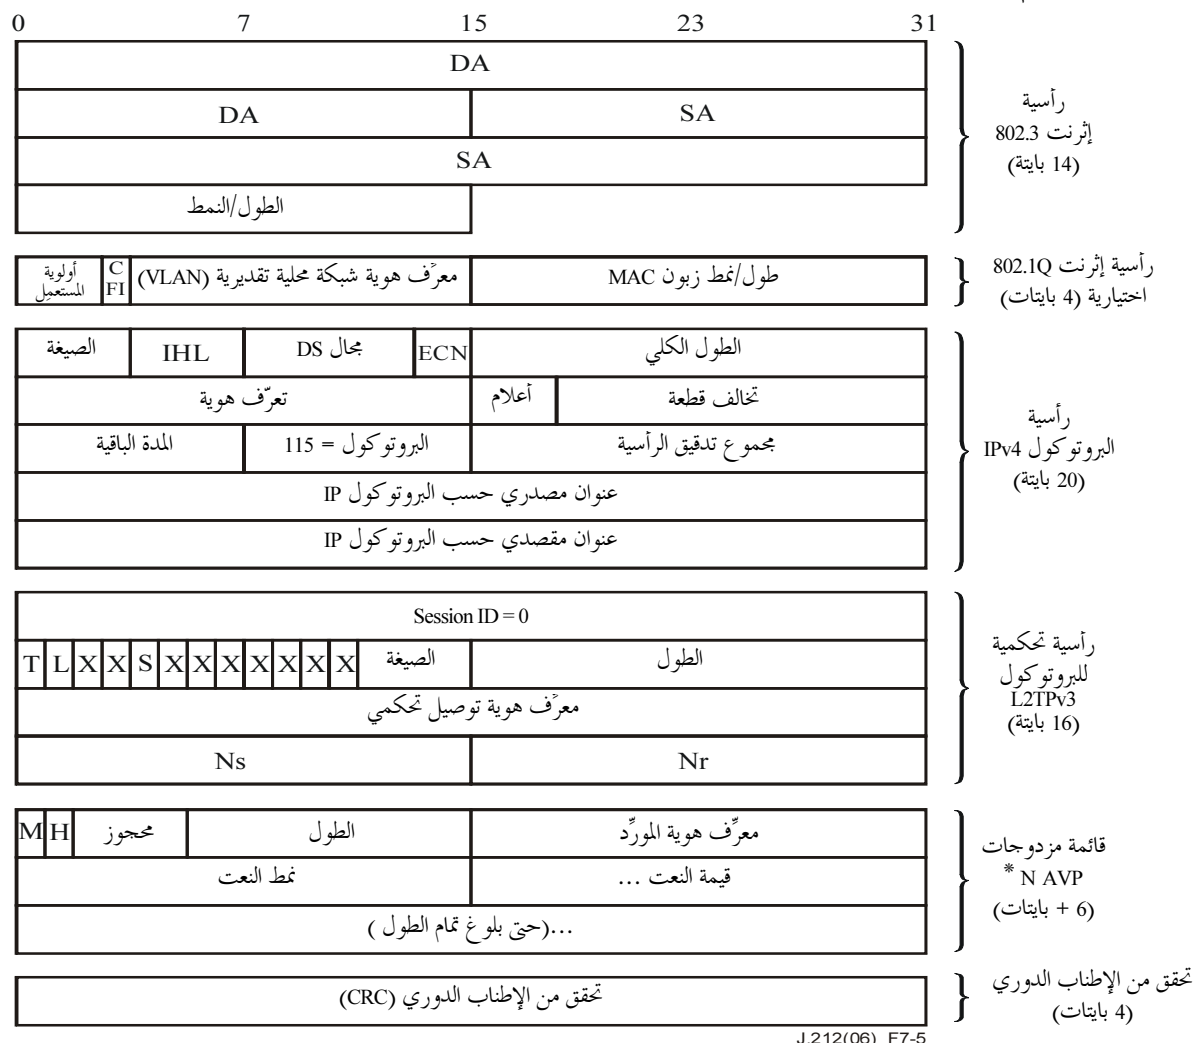 0 7 15 23 31
DA
DA SA
SA
الطول/النمط
رأسية
إثرنت 802.3
(14 بايتة)
أولوية
المستعمِل
C
FI
معرّف هوية شبكة محلية تقديرية (VLAN)
طول/نمط زبون MAC
رأسية إثرنت 802.1Q
اختيارية (4 بايتات)
الصيغة IHL مجال DS ECN الطول الكلي
تعرّف هوية أعلام تخالف قطعة
المدة الباقية البروتوكول = 115 مجموع تدقيق الرأسية
عنوان مصدري حسب البروتوكول IP
عنوان مقصدي حسب البروتوكول IP
رأسية
البروتوكول IPv4
(20 بايتة)
Session ID = 0
T L X X S X X X X X X X الصيغة الطول
معرّف هوية توصيل تحكمي
Ns Nr
رأسية تحكمية
للبروتوكول
L2TPv3
(16 بايتة)
M H محجوز الطول معرِّف هوية المورِّد
نمط النعت قيمة النعت ...
...(حتى بلوغ تمام الطول )
قائمة مزدوجات
* N AVP
(6 + بايتات)
تحقق من الإطناب الدوري (CRC)
تحقق من الإطناب الدوري
(4 بايتات)
J.212(06)_F7-5